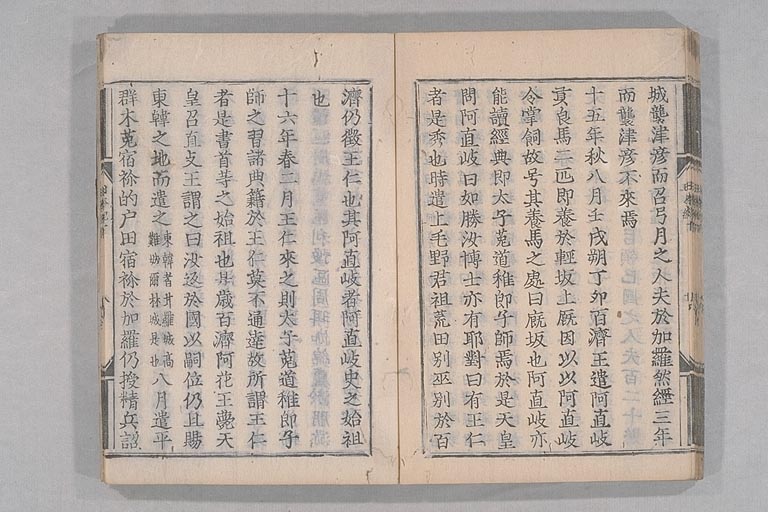 城襲津彦而召弓月之人夫於加羅然經三年
而襲津彦不來焉
十五年秋八月壬戌朔丁卯百濟王遣阿直岐
貢良馬二匹即養於輕坂上厩因以以阿直岐
令掌飼故号其養馬之處曰厩坂也阿直岐亦
能讀經典即太子菟道稚郎子師焉於是天皇
問阿直岐曰如勝汝博士亦有耶對曰有王仁
者是秀也時遣上毛野君祖荒田別巫別於百
濟仍徵王仁也其阿直岐者阿直岐史之始祖
也
十六年春二月王仁來之則太子菟道稚郎子
師之習諸典籍於王仁莫不通達故所謂王仁
者是書首等之始祖也是歳百濟阿花王薨天
皇召直支王謂之曰汝返於國以嗣位仍且賜
東韓之地而遣之東韓者甘羅城高難城爾林城是也八月遣平
群木菟宿祢的戸田宿祢於加羅仍授精兵詔